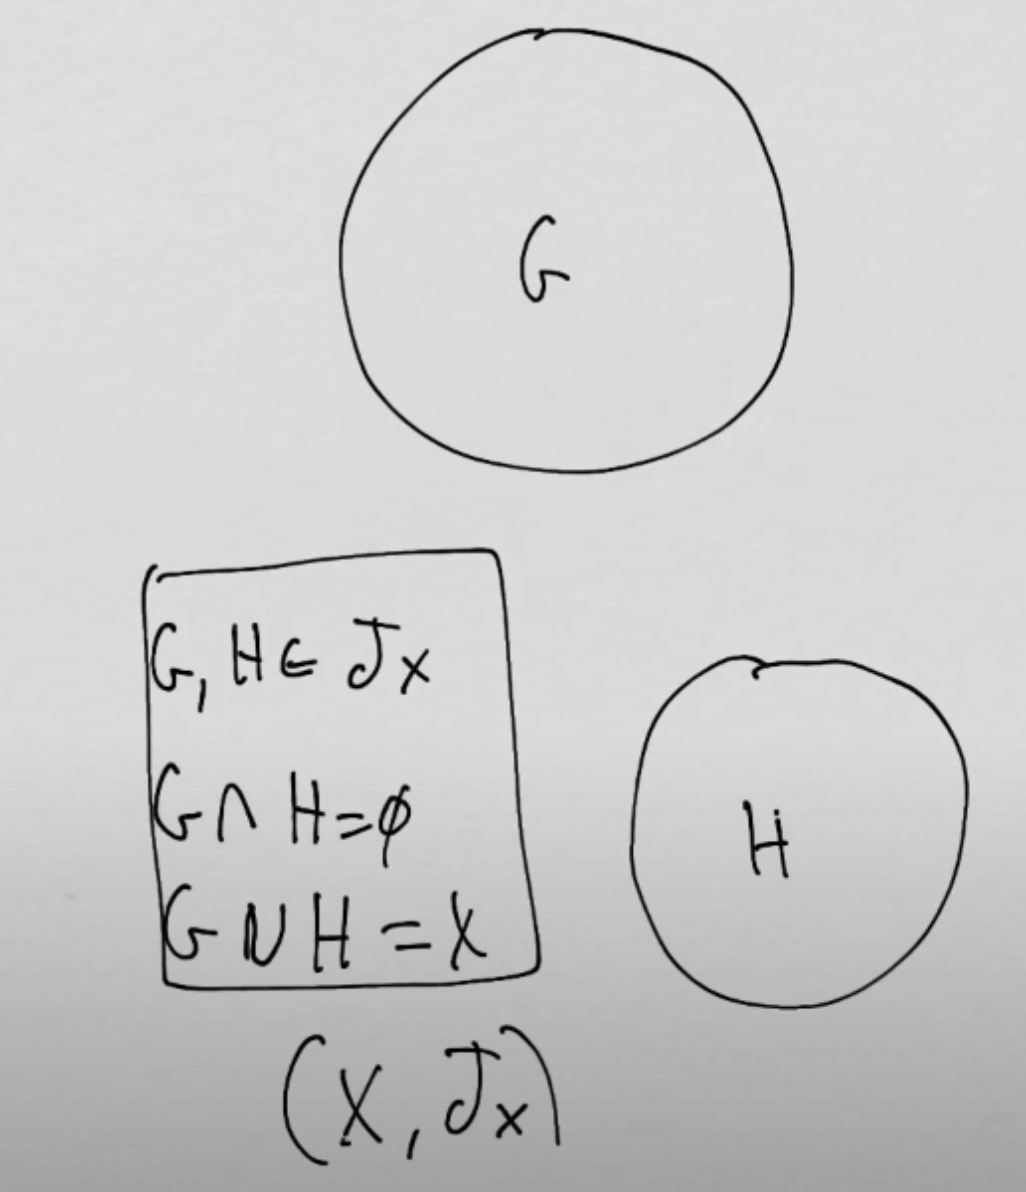 G
G, H ∈ Jx
G ∩ H = ϕ
H
G ∪ H = X
(X, Jx)